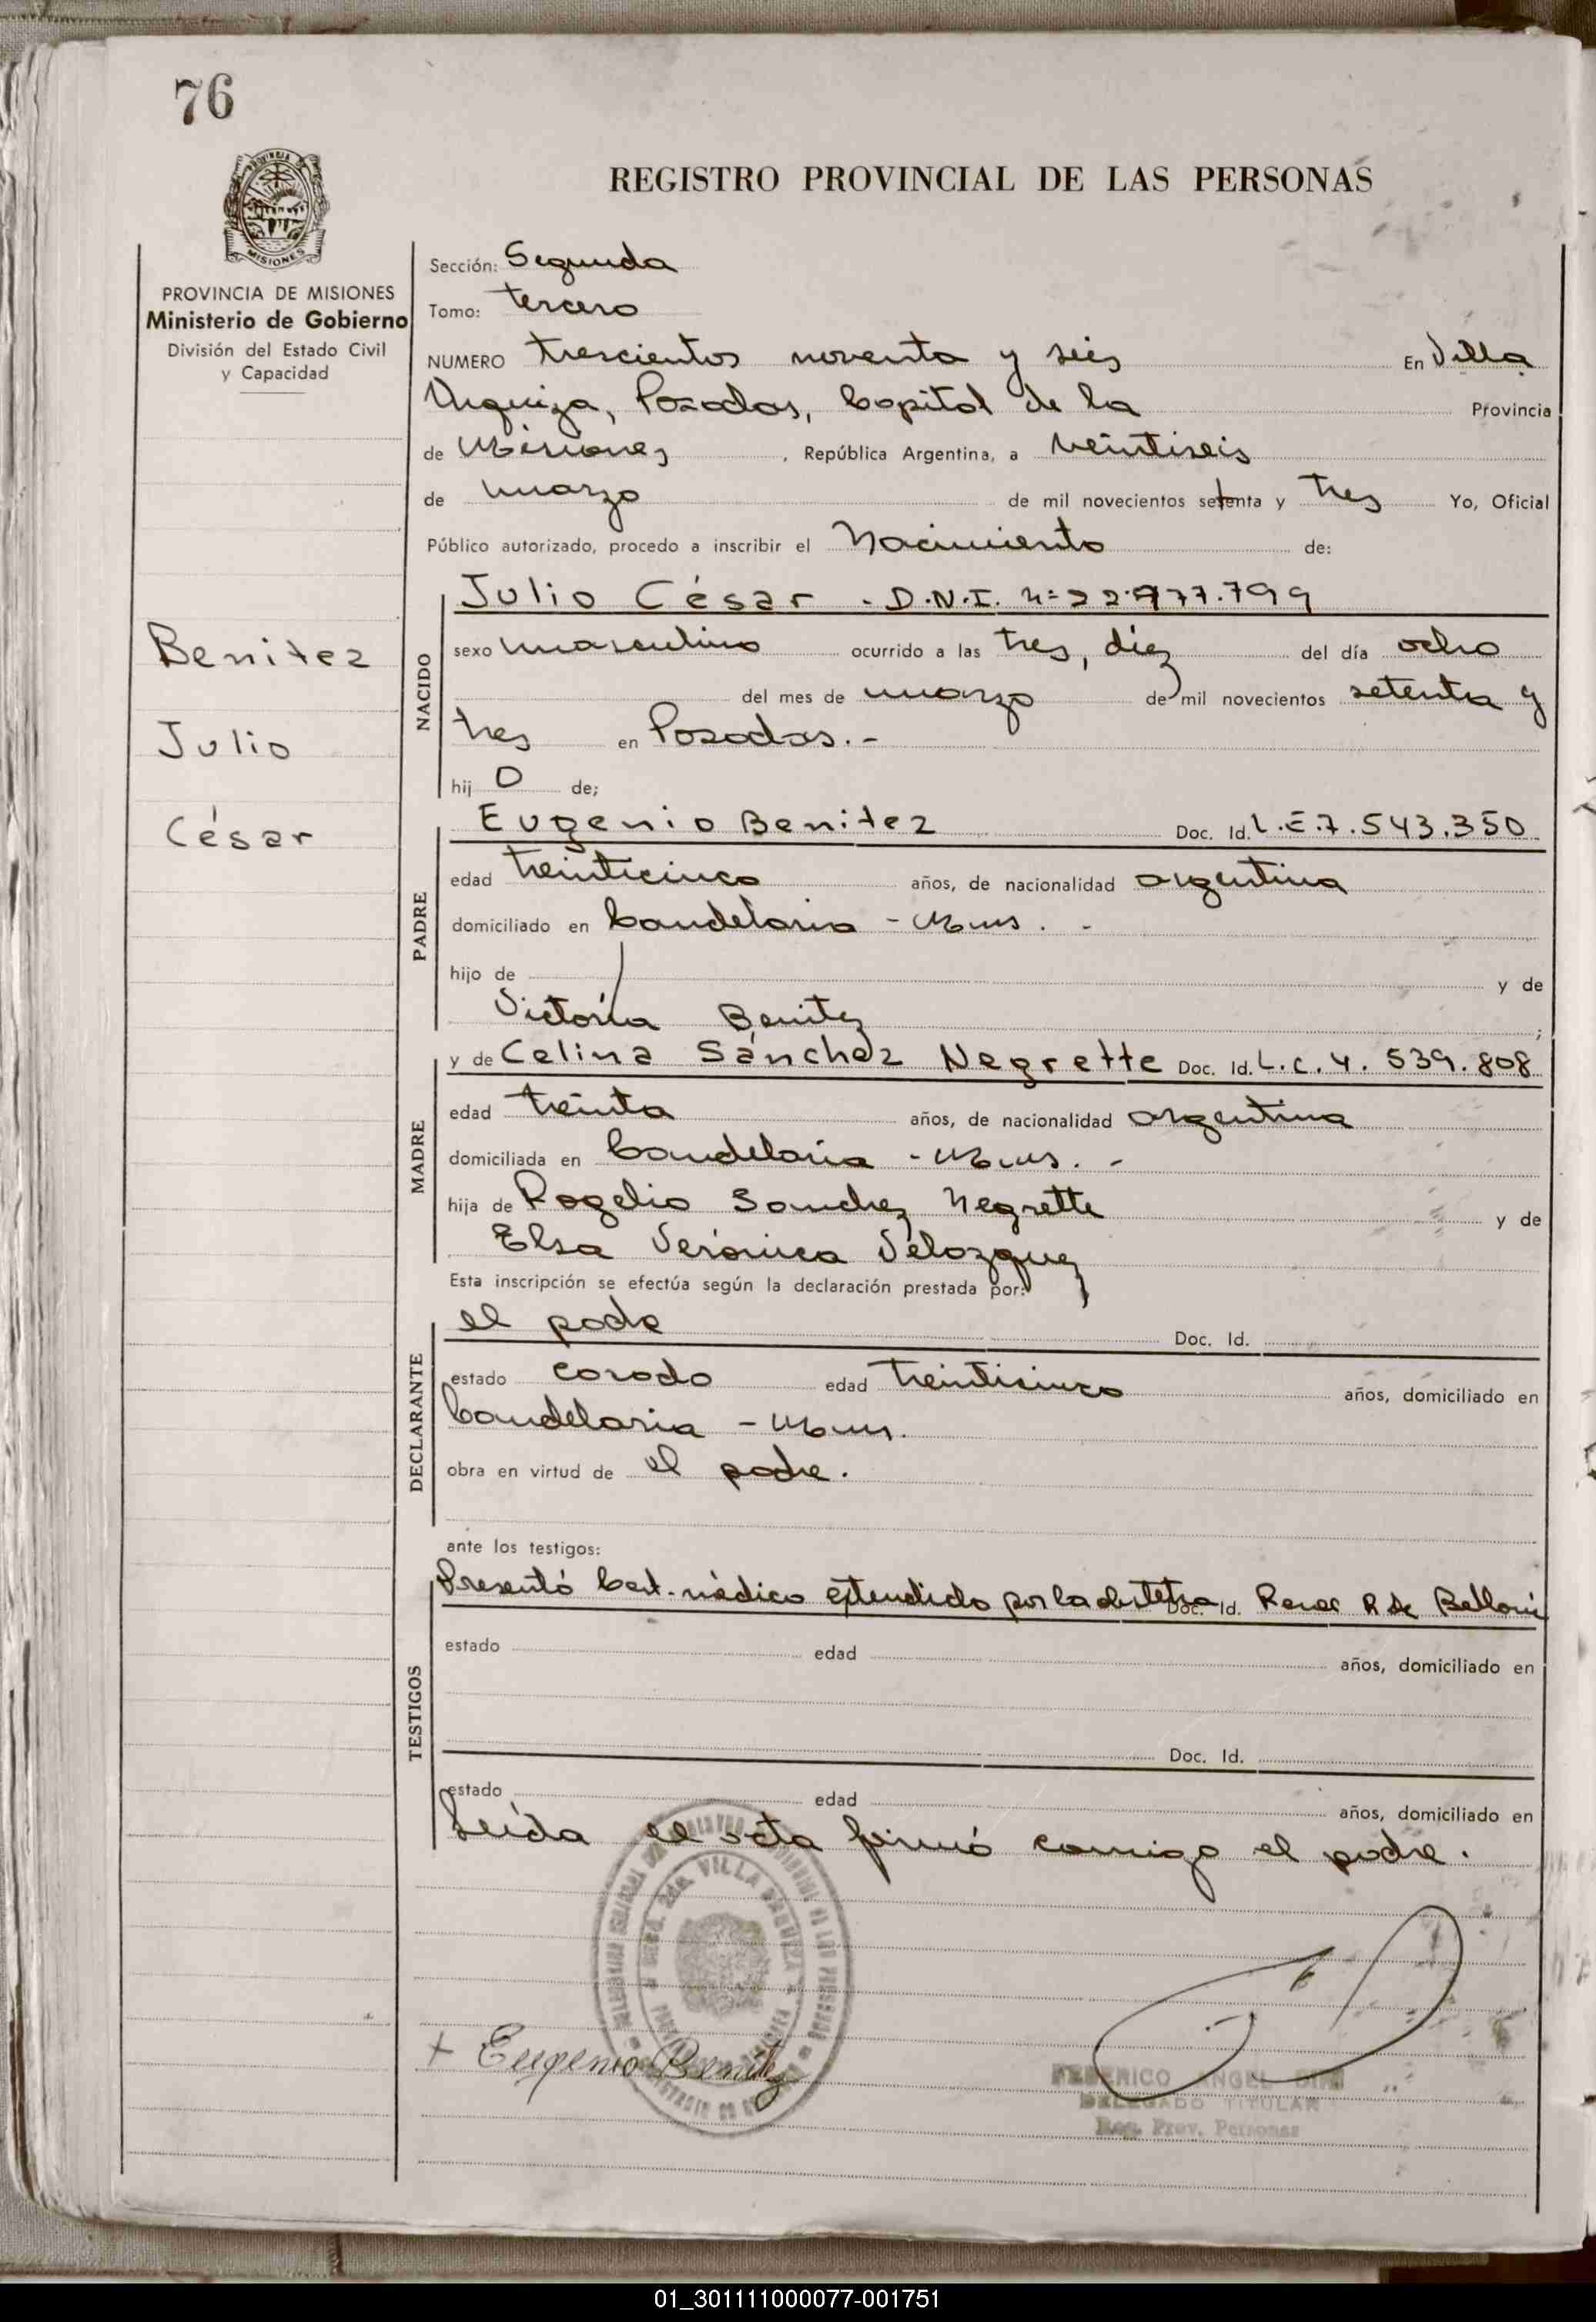 76
REGISTRO PROVINCIAL DE LAS PERSONAS
MISIONES
PROVINCIA DE MISIONES
Ministerio de Gobierno
División del Estado Civil
y Capacidad
Benitez
Julio
César
Sección: Segunda
Tomo: tercero
NUMERO trescientos noventa y seis En Villa
Urquiza, Posadas, Capital de la Provincia
de Misiones, República Argentina, a veintiseis
de marzo de mil novecientos setenta y tres Yo, Oficial
Público autorizado, procedo a inscribir el Nacimiento de:
NACIDO
Julio César - D.N.I. n= 22.977.799
sexo masculino ocurrido a las tres, diez del día ocho
del mes de marzo de mil novecientos setenta y
tres en Posadas.-
hij o de;
PADRE
Eugenio Benitez Doc. Id. L.E.7.543.350
edad treinticinco años, de nacionalidad argentina
domiciliado en Candelaria - Mnes. -
hijo de y de
Victoria Benitez ;
MADRE
y de Celina Sánchez Negrette Doc. Id. L.C. 4. 539.808
edad treinta años, de nacionalidad argentina
domiciliada en Candelaria - Mnes. -
hija de Rogelio Sanchez Negrette y de
Elsa Verónica Velazquez
Esta inscripción se efectúa según la declaración prestada por:
DECLARANTE
el padre Doc. Id.
estado casado edad treinticinco años, domiciliado en
Candelaria - Mnes.
obra en virtud de el padre.
ante los testigos:
TESTIGOS
Presentó Cert. médico extendido por la obstetra Doc. Id. R. de Belloni
estado edad años, domiciliado en
Doc. Id.
estado edad años, domiciliado en
Leída el acta firmó conmigo el padre.
VILLA
+ Eugenio Benitez
FEDERICO ANGEL
DELEGADO TITULAR
Reg. Prov. Personas
01_301111000077-001751